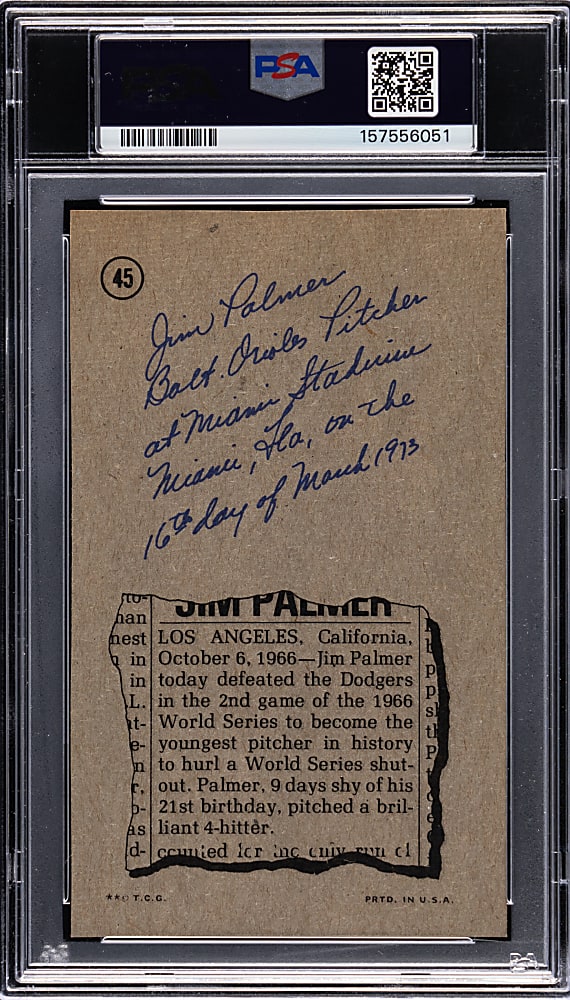 PSA
157556051
45
Jim Palmer
Balt. Orioles Pitcher
at Miami Stadium
Miami, Fla, on the
16th day of March 1973
JIM PALMER
LOS ANGELES, California,
October 6, 1966—Jim Palmer
today defeated the Dodgers
in the 2nd game of the 1966
World Series to become the
youngest pitcher in history
to hurl a World Series shut-
out. Palmer, 9 days shy of his
21st birthday, pitched a bril-
liant 4-hitter.
counted for the only run of
**© T.C.G.
PRTD. IN U.S.A.
PSA